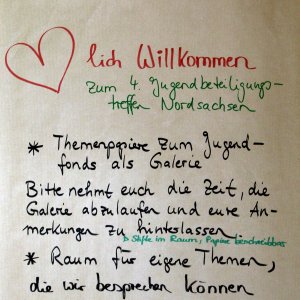 lich Willkommen
zum 4. Jugendbeteiligungs-
treffen Nordsachsen
* Themenpapiere zum Jugend-
fonds als Galerie
Bitte nehmt euch die Zeit, die
Galerie abzulaufen und eure An-
merkungen zu hinterlassen
Stifte im Raum, Papiere beschreibbar
* Raum für eigene Themen,
die wir besprechen können